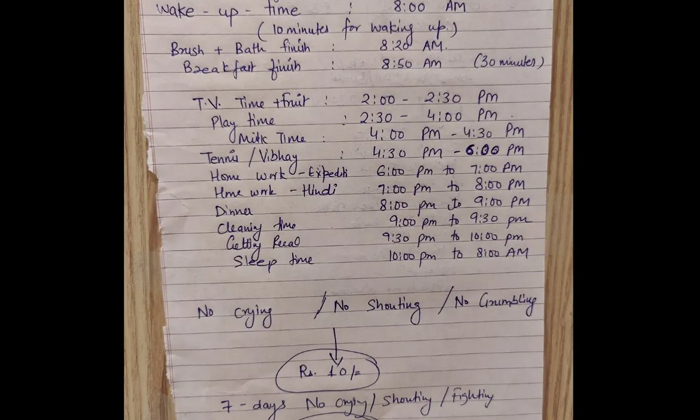 Wake-up-time : 8:00 AM
(10 minutes for waking up)
Brush + Bath finish : 8:20 AM.
Breakfast finish : 8:50 AM (30 minutes)
T.V. Time + fruit : 2:00 - 2:30 PM
Play time : 2:30 - 4:00 PM
Milk Time : 4:00 PM - 4:30 PM
Tennis / Vibhay : 4:30 PM - 6:00 PM
Home work - 6:00 PM to 7:00 AM
Home work - Hindi 7:00 pm to 8:00 PM
Dinner 8:00 pm to 9:00 PM
Cleaning time 9:00 pm to 9:30 pm
Getting 9:30 pm to 10:00 pm
Sleep time 10:00 pm to 8:00 AM
No Crying / No Shouting / No Grumbling
Rs. 10/-
7 - days No Crying / Shouting / Fighting